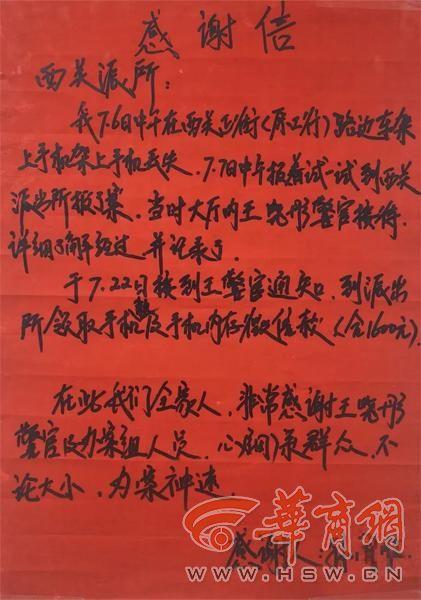 感谢信
西关派所：
我7.6日中午在西关正街(原工行)路边车架
上手机架上手机丢失，7.7日中午抱着试一试到西关
派出所报了案，当时大厅内王晓彤警官接待，
详细了解经过并记录了
于7.22日接到王警官通知，到派出
所领取手机及手机内存微信款(合1600元).
在此我们全家人，非常感谢王晓彤
警官及办案组人员，心细系群众，不
论大小，为案神速.
感谢人：
华商网
WWW.HSW.CN